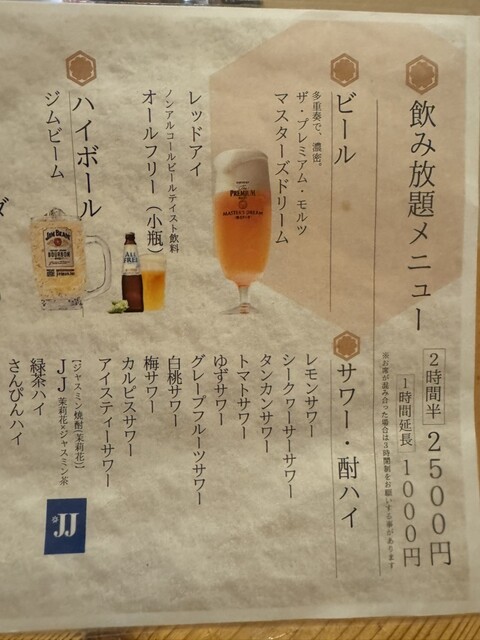 飲み放題メニュー
2時間半 2500円
1時間延長 1000円
※お席が混み合った場合は3時間制をお願いする事があります
ビール
多重奏で、濃密。
ザ・プレミアム・モルツ
マスターズドリーム
PREMIUM
MASTER'S DREAM
レッドアイ
ノンアルコールビールテイスト飲料
オールフリー(小瓶)
ALL FREE
ハイボール
ジムビーム
JIM BEAM
BOURBON
サワー・酎ハイ
レモンサワー
シークワーサーサワー
タンカンサワー
トマトサワー
ゆずサワー
グレープフルーツサワー
白桃サワー
梅サワー
カルピスサワー
アイスティーサワー
【ジャスミン焼酎(茉莉花)】
JJ 茉莉花×ジャスミン茶
JJ
緑茶ハイ
さんぴんハイ